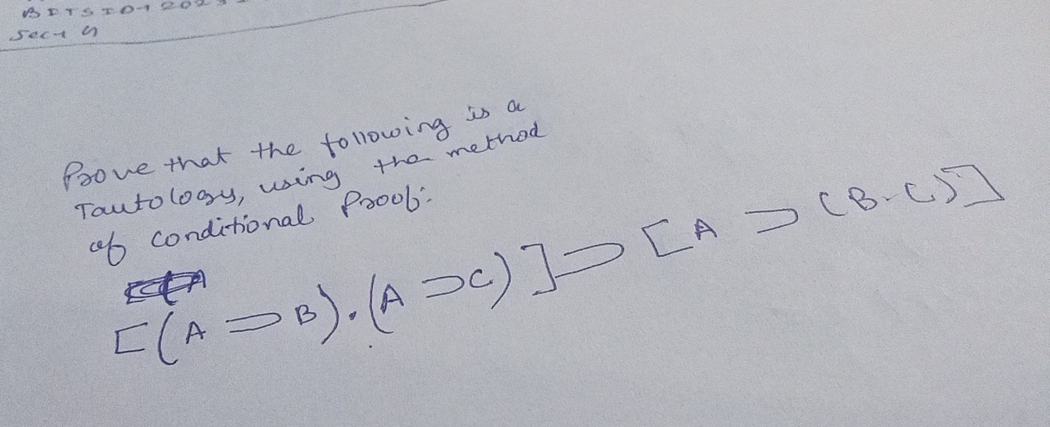 Sec-4
Prove that the following is a
Tautology, using the method
of conditional Proof:
[(A ⊃ B).(A ⊃ C)] ⊃ [A ⊃ (B.C)]